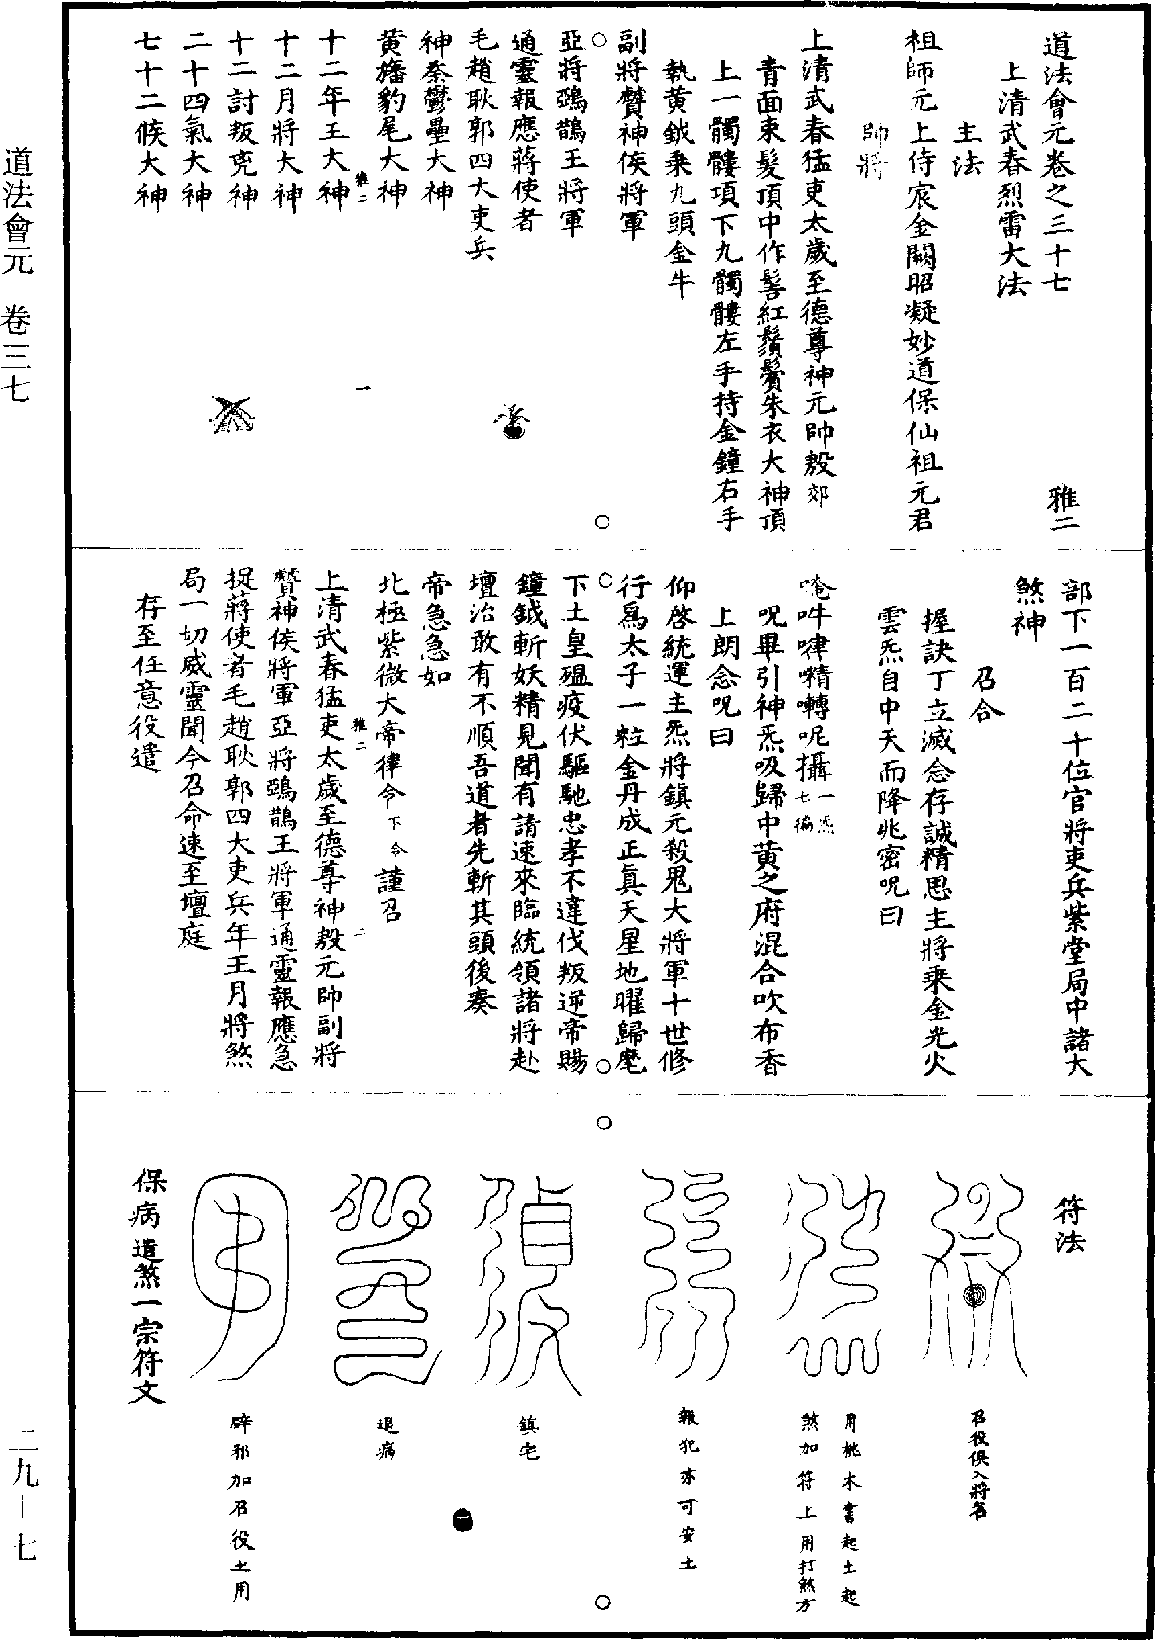 道法會元卷之三十七　雅二
上清武春烈雷大法
主法
祖師元上侍宸金闕昭凝妙道保仙祖元君
帥將
上清武春猛吏太歲至德尊神元帥殷郊
青面束髮頂中作髻紅鬚鬢朱衣大神頂
上一髑髏項下九髑髏左手持金鐘右手
執黃鉞乘九頭金牛
副將贊神侯將軍
亞將鵶鵲王將軍
通靈報應蔣使者
毛趙耿郭四大吏兵
神荼鬱壘大神
黃旛豹尾大神
雅二　一
十二年王大神
十二月將大神
十二討叛兇神
二十四氣大神
七十二候大神
部下一百二十位官將吏兵紫堂局中諸大
煞神
召合
握訣丁立滅念存誠精思主將乘金光火
雲炁自中天而降兆密呪曰
唵吽嘩囀呢攝一炁七徧
呪畢引神炁吸歸中黃之府混合吹布香
上朗念呪曰
仰啓統運主炁將鎮元殺鬼大將軍十世修
行爲太子一粒金丹成正真天星地曜歸麾
下土皇瘟疫伏驅馳忠孝不違伐叛逆帝賜
鐘鉞斬妖精見聞有請速來臨統領諸將赴
壇治敢有不順吾道者先斬其頭後奏
帝急急如
北極紫微大帝律令下令謹召
雅二　二
上清武春猛吏太歲至德尊神殷元帥副將
贊神侯將軍亞將鵶鵲王將軍通靈報應急
捉蔣使者毛趙耿郭四大吏兵年王月將煞
局一切威靈聞今召命速至壇庭
存至任意役遣
符法
召役俱入將名
用桃木書起土起
煞加符上用打煞方
報犯亦可安土
鎮宅
退病
辟邪加召役土用
保病遣煞一宗符文
道法會元　卷三七
二九－七